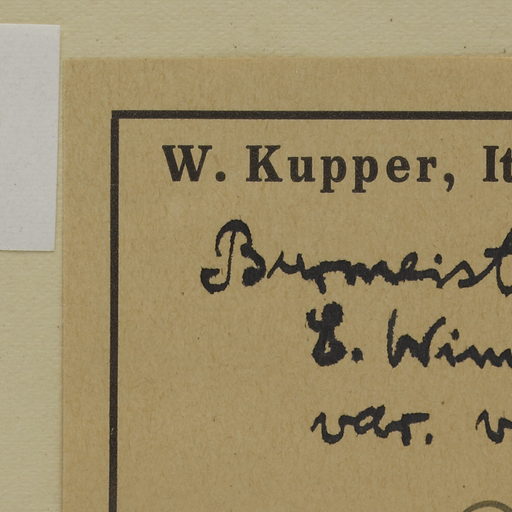 W. Kupper, It
Burmeist
E. Wim
var. v